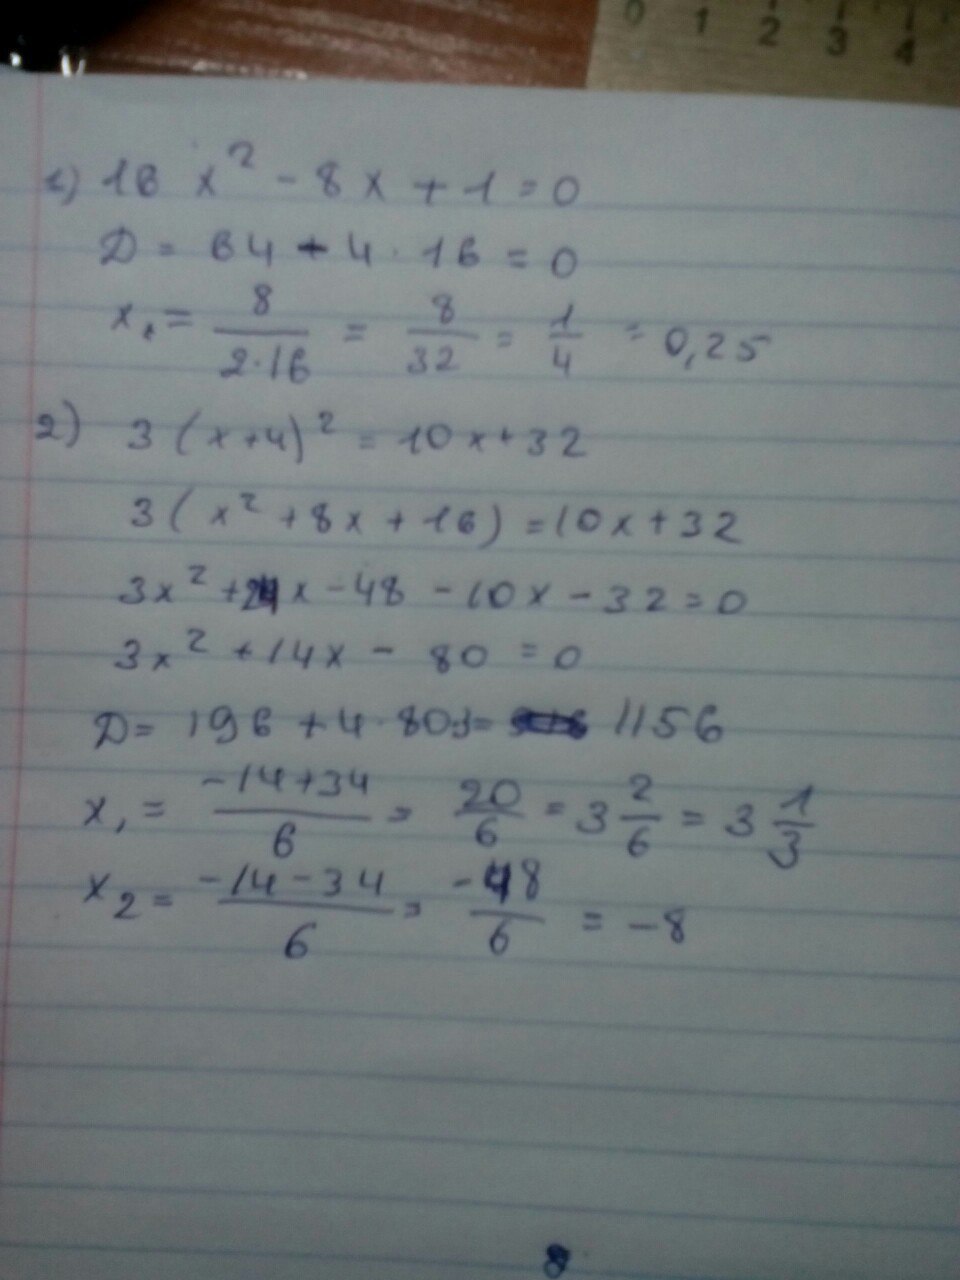 0 1 2 3 4
1) 16 x² - 8x + 1 = 0
D = 64 - 4 · 16 = 0
x₁ = 8/(2·16) = 8/32 = 1/4 = 0,25
2) 3(x+4)² = 10x+32
3(x² + 8x + 16) = 10x + 32
3x² + 24x - 48 - 10x - 32 = 0
3x² + 14x - 80 = 0
D = 196 + 4·80·3 = 1156
x₁ = (-14+34)/6 = 20/6 = 3 2/6 = 3 1/3
x₂ = (-14-34)/6 = -48/6 = -8
8